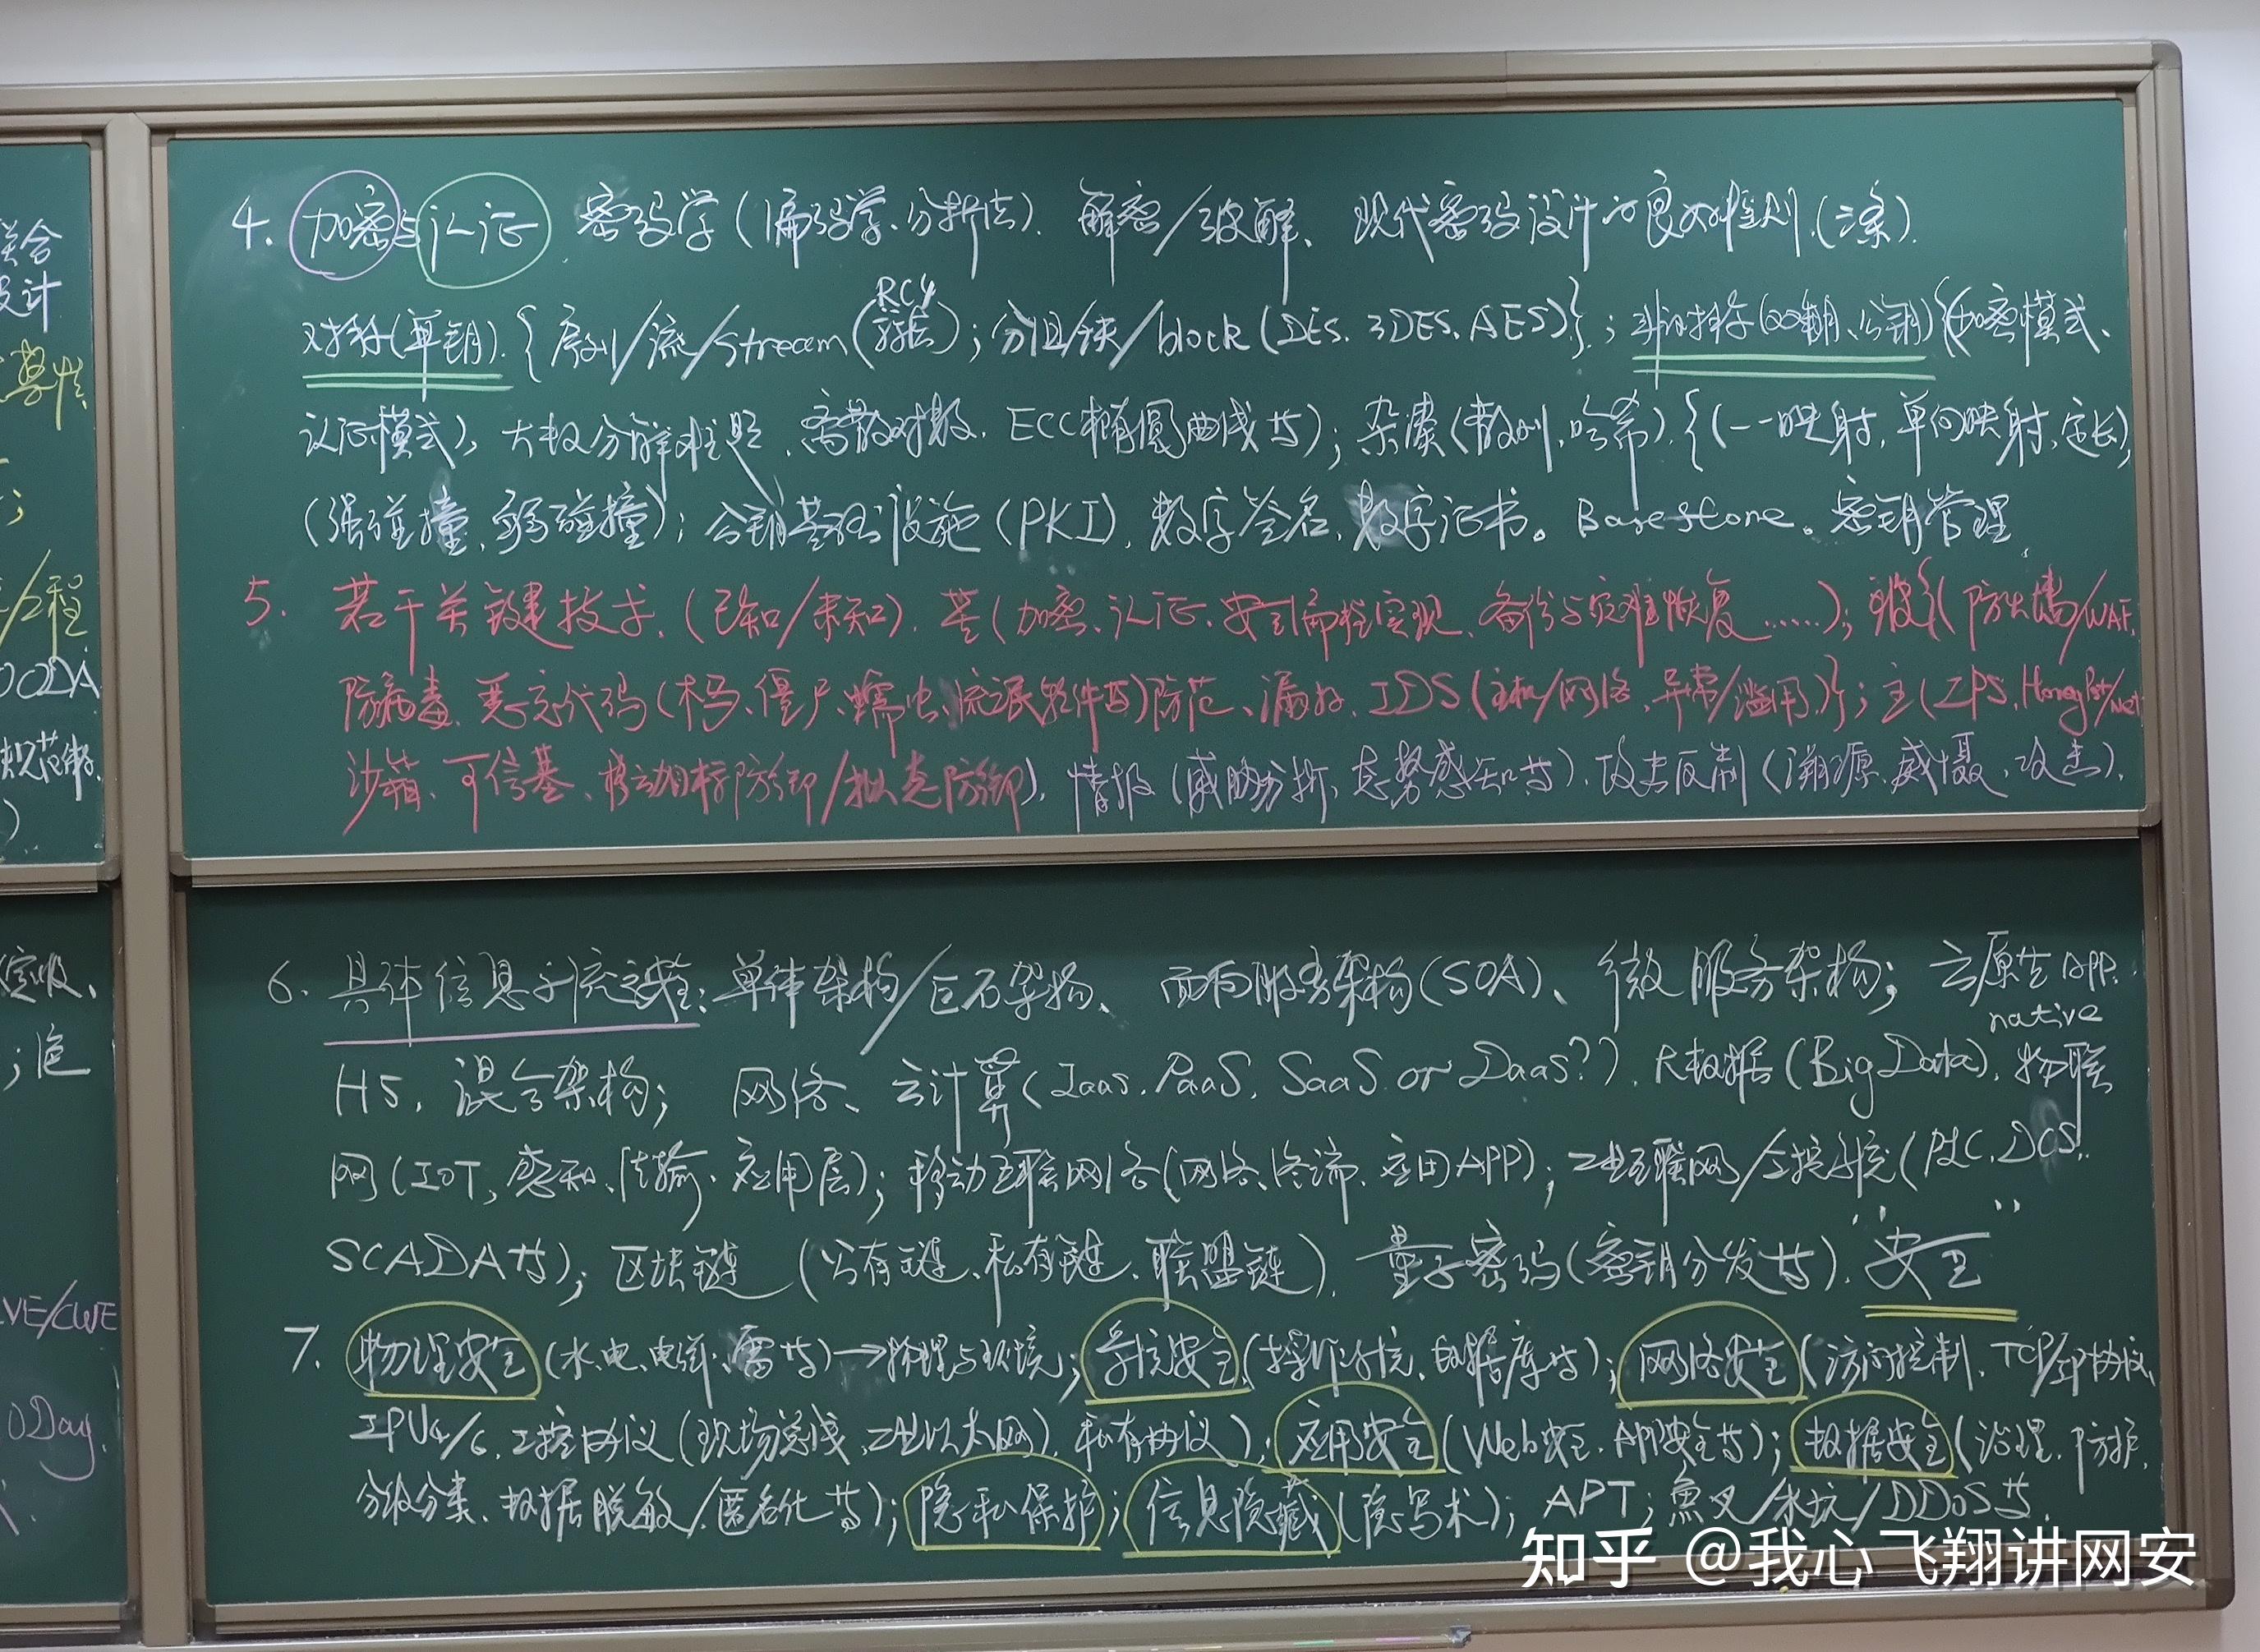 联合
设计
/工程
OODA
规范律
)
定级、
;
VE/CWE
0Day.
4. 加密与认证 密码学(编码学、分析法). 解密/破解、现代密码设计的良好准则.(三条).
对称(单钥).{序列/流/stream(RC4 ); 分组/块/block(DES. 3DES. AES)}.; 非对称(双钥、公钥){(加密模式、
认证模式)、大数分解难题、离散对数. ECC椭圆曲线等); 杂凑(散列,哈希).{(一一映射,单向映射,定长),
(强碰撞、弱碰撞); 公钥基础设施(PKI), 数字签名,数字证书。Base stone。密钥管理.
5. 若干关键技术.(已知/未知). 基(加密、认证、安全编程实现、备份与灾难恢复……); 被{(防火墙/WAF.
防病毒、恶意代码(木马、僵尸、蠕虫、流氓软件等)防范、漏扫. IDS(主机/网络、异常/滥用)}; 主(IPS. HoneyPot/Net
沙箱、可信基、移动目标防御/拟态防御). 情报(威胁分析、态势感知等). 攻击反制(溯源、威慑、攻击).
6. 具体信息系统之安全: 单体架构/巨石架构、面向服务架构(SOA)、微服务架构; 云原生APP.
native
H5. 混合架构; 网络、云计算(IaaS. PaaS. SaaS. or DaaS??). 大数据(Big Data). 物联
网(IOT, 感知、传输、应用层); 移动互联网络(网络、终端、应用APP); 工业互联网/工控系统(PLC. DCS.
SCADA等); 区块链(公有链、私有链、联盟链). 量子密码(密钥分发等). "安全"
7. 物理安全(水、电、电磁、雷等)→物理与环境; 系统安全(操作系统、数据库等); 网络安全(访问控制、TCP/IP协议,
IPV4/6. 工控协议(现场总线、工业以太网). 私有协议); 应用安全(Web安全、APP安全等); 数据安全(治理、防护.
分级分类、数据脱敏/匿名化等); 隐私保护; 信息隐藏(隐写术); APT; 鱼叉/水坑/DDoS等.
知乎 @我心飞翔讲网安